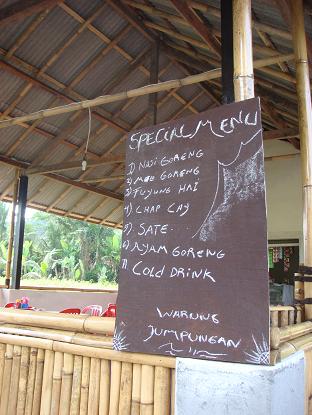 SPECIAL MENU
1) NASI GORENG
2) MEE GORENG
3) FUYUNG HAI
4) CHAP CAY
5) SATE.
6) AYAM GORENG
7. COLD DRINK
WARUNG
JUMPUNGAN